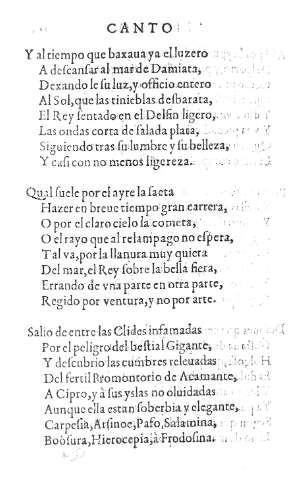 CANTO
Y al tiempo que baxaua ya el luzero
A descansar al mar de Damiata,
Dexando le su luz, y officio entero
Al Sol, que las tinieblas desbarata,
El Rey sentado en el Delfin ligero,
Las ondas corta de salada plata,
Siguiendo tras su lumbre y su belleza,
Y casi con no menos ligereza.
Qual suele por el ayre la saeta
Hazer en breue tiempo gran carrera,
O por el claro cielo la cometa,
O el rayo que al relampago no espera,
Tal va, por la llanura muy quiera
Del mar, el Rey sobre la bella fiera,
Errando de vna parte en otra parte,
Regido por ventura, y no por arte.
Salio de entre las Clides infamadas
Por el peligro del bestial Gigante,
Y descubrio las cumbres releuadas
Del fertil Promontorio de Acamante,
A Cipro, y à sus yslas no oluidadas
Aunque ella estan soberbia y elegante,
Carpesia, Arsinoe, Pafo, Salamina,
Boosura, Hierocepia, à Frodosina.